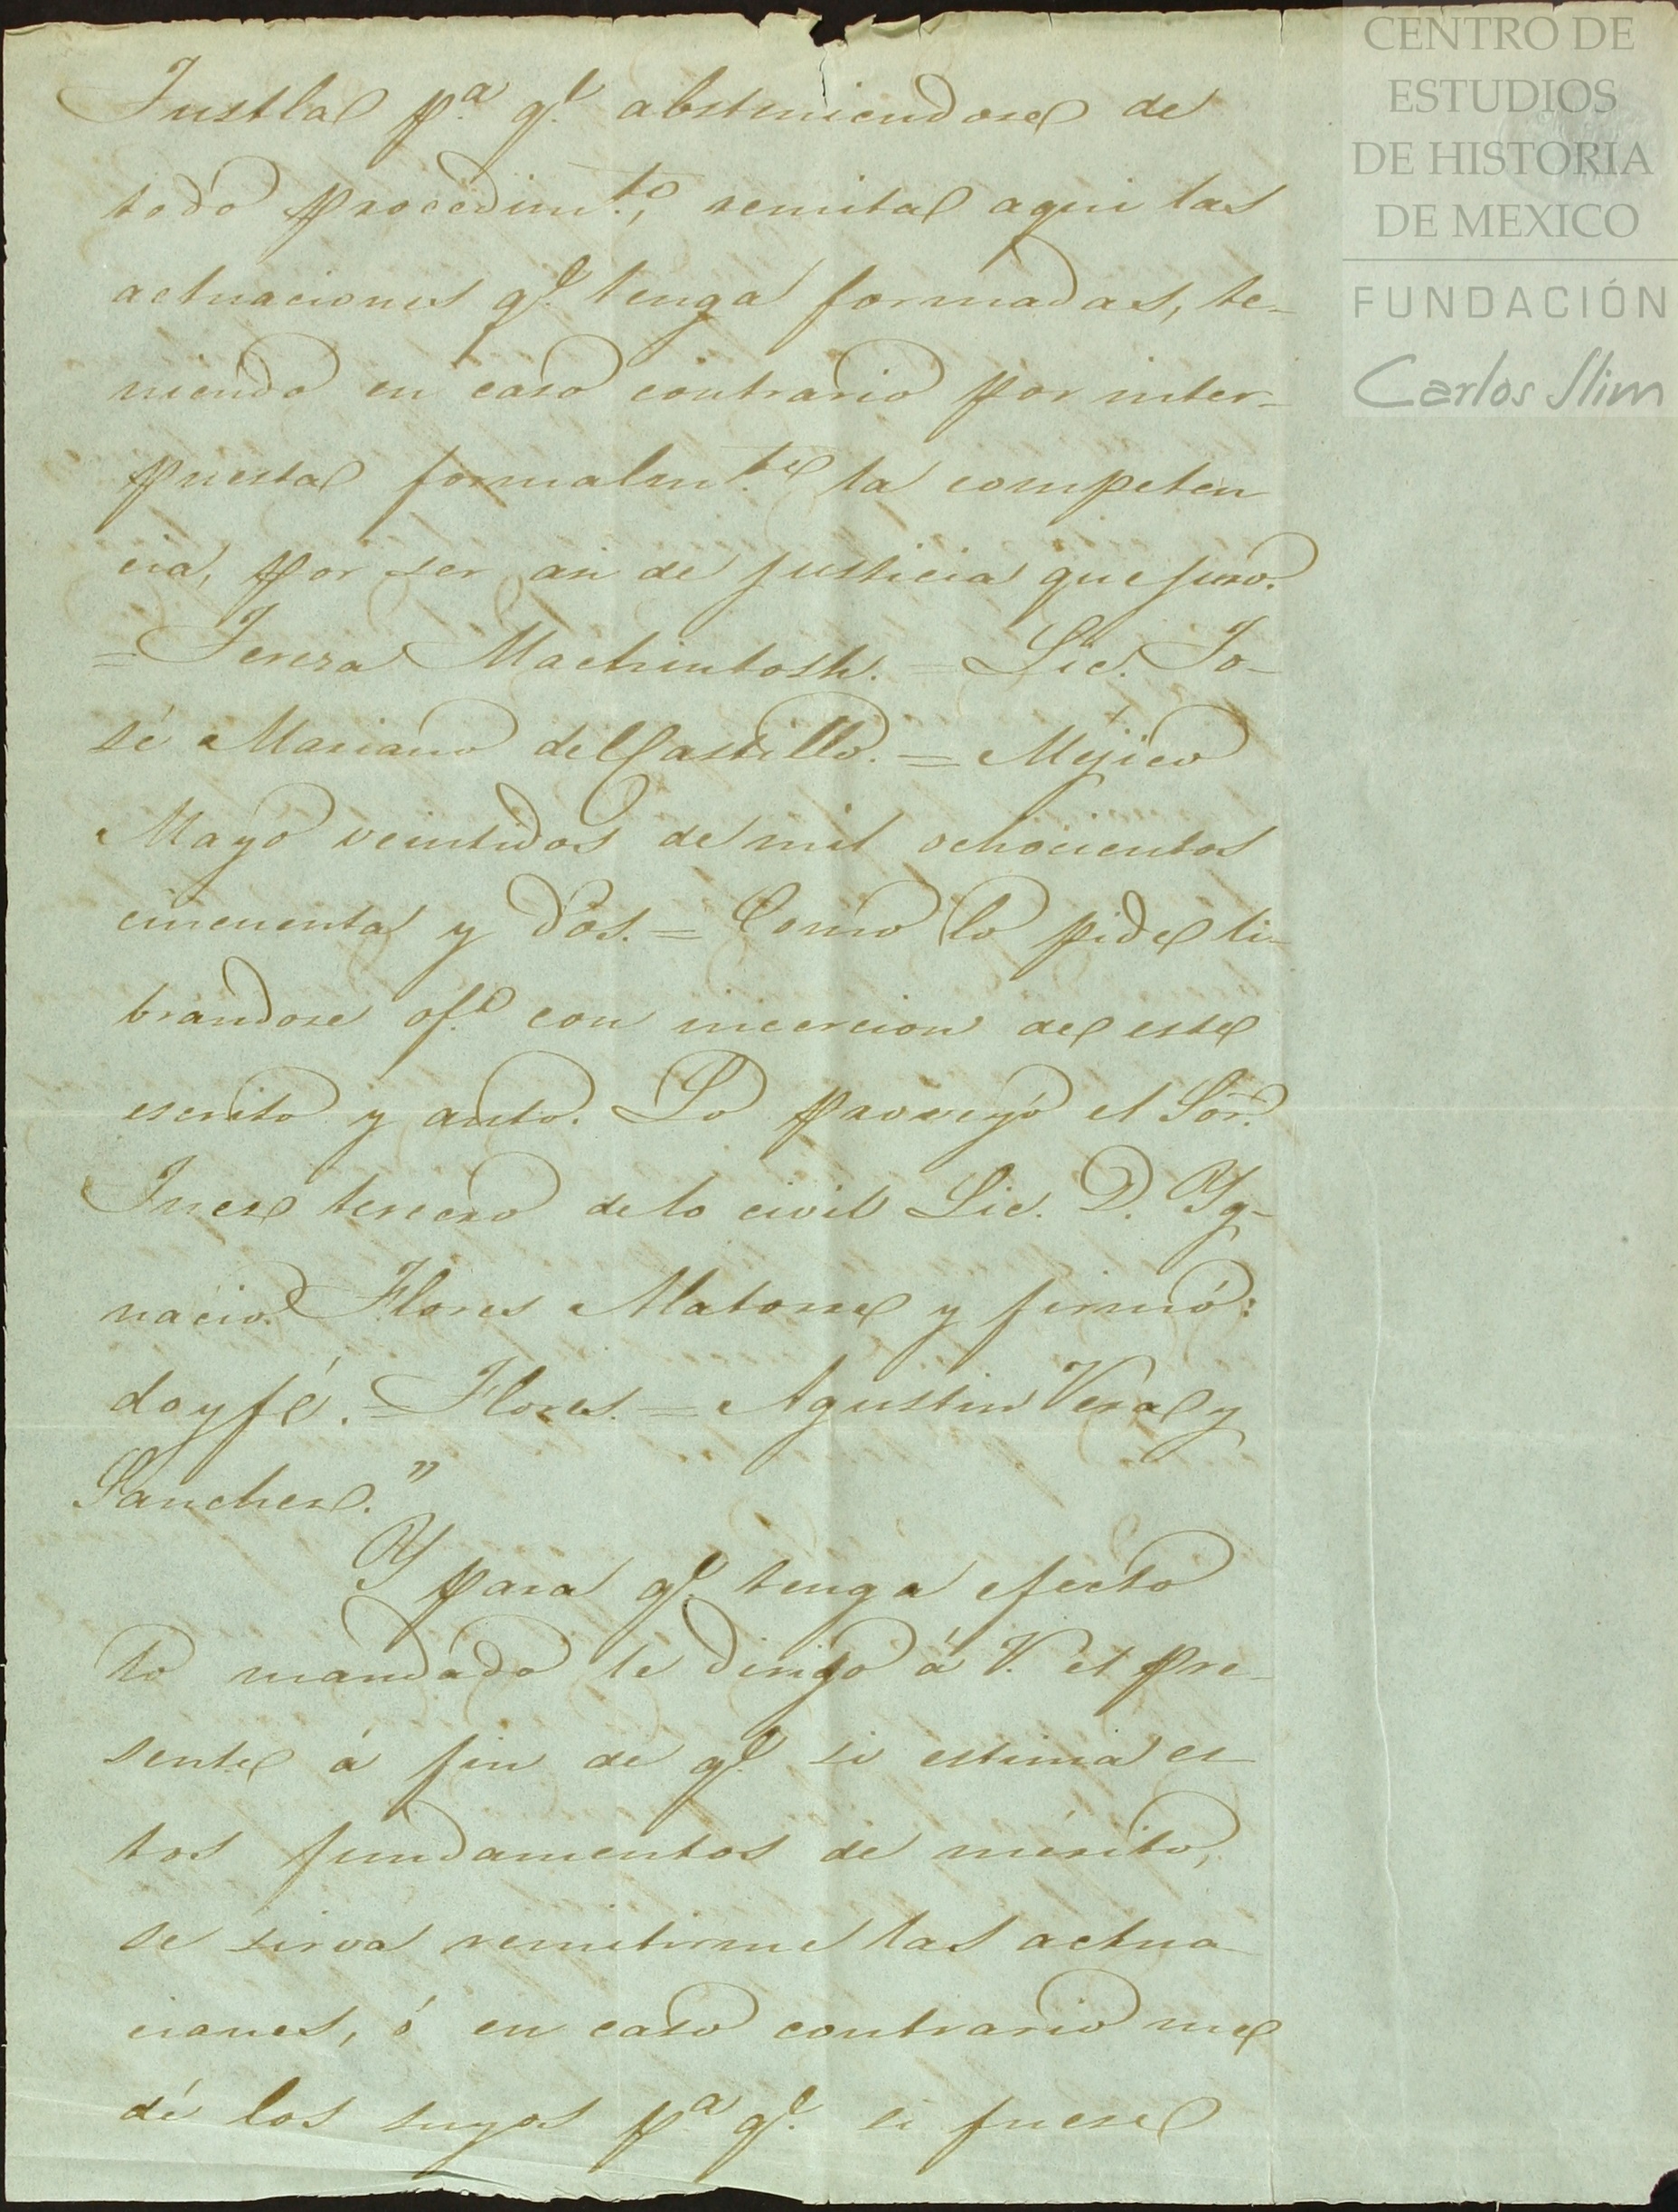 Tustla p.ª q.e absteniendose de
todo procedim.to, remita aqui las
actuaciones q.e tenga formadas, te-
niendo en caso contrario por inter-
puesta formalm.te la competen
cia, por ser asi de justicia que juro.
= Teresa Machintosh. = Lic. Jo-
sé Mariano del Castillo. = Méjico
Mayo veintidos de mil ochocientos
cincuenta y dos. = Como lo pide li-
brandose of.o con incercion de este
escrito y auto. Lo proveyó el Sor.
Juez tercero de lo civil Lic. D. Yg-
nacio Flores Alatorre y firmó:
doy fé. = Flores. = Agustin Vera y
Sanchez."
Y para q.e tenga efecto
lo mandado le dirijo á V. el pre-
sente á fin de q.e si estima es-
tos fundamentos de mérito,
se sirva remitirme las actua
ciones, ó en caso contrario me
dé los suyos p.ª q.e si fuere
CENTRO DE
ESTUDIOS
DE HISTORIA
DE MEXICO
FUNDACIÓN
Carlos Slim